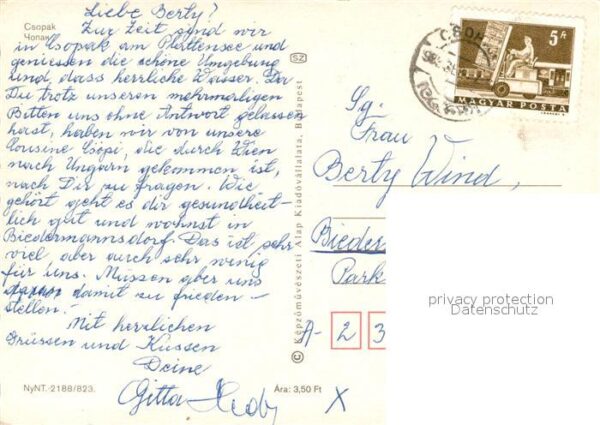 Csopak
Чопак
Liebe Berty!
Zur Zeit sind wir
in Csopak am Plattensee und
geniessen die schöne Umgebung
und, dass herrliche Wasser. Da
Du trotz unseren mehrmarligen
Bitten uns ohne Antwort gelassen
hast, haben wir von unsere
Cousine Csöpi, die durch Wien
nach Ungarn gekommen ist,
nach Dir zu fragen. Wie
gehört geht es dir gesundheit-
lich gut und wohnst in
Biedermannsdorf. Das ist sehr
viel, aber auch sehr wenig
für uns. Müssen aber uns
damit zu frieden-
stellen.
Mit herzlichen
Grüssen und Küssen
Deine
Gitta
NyNT. -2188/823.
Ára: 3,50 Ft
SZ
© Képzőművészeti Alap Kiadóvállalata, Budapest
CSOPAK
5 Ft
MAGYAR POSTA
Sg.
Frau
Berty Wind,
Bieder
Park
A-23
X
privacy protection
Datenschutz